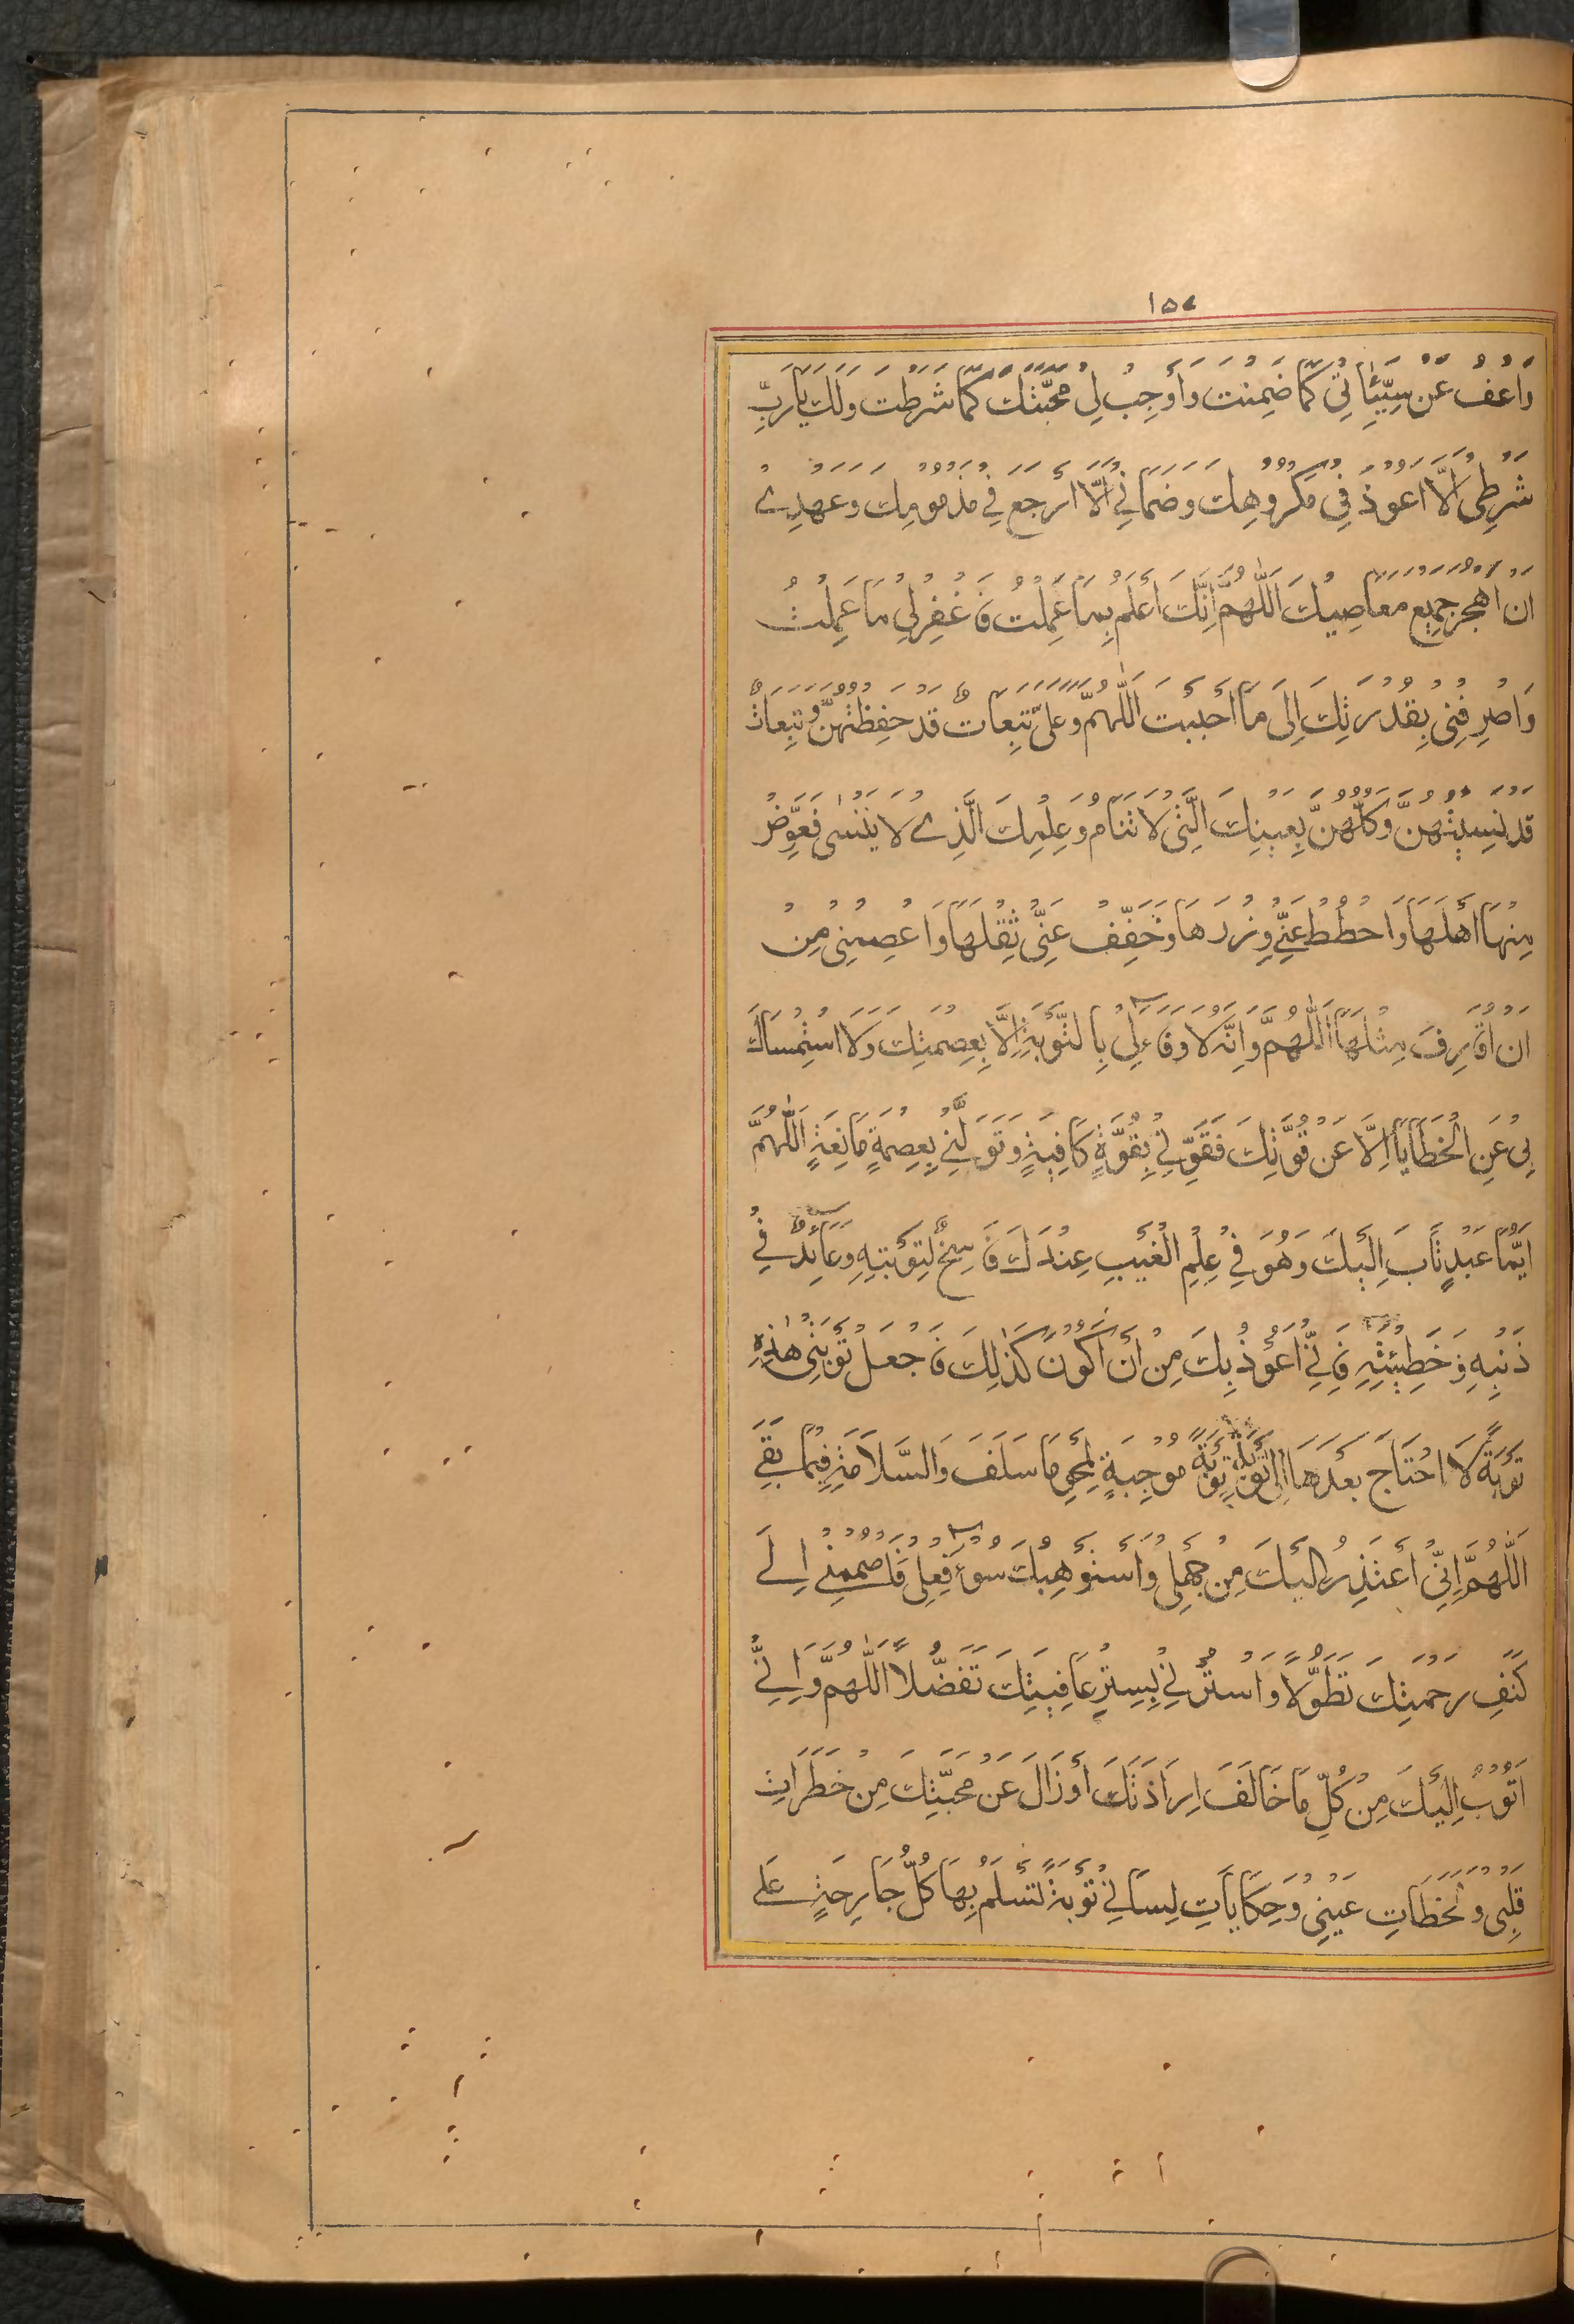 ١٥٧
وَاعْفُ عَنْ سَيِّئَاتِيْ كَمَا ضَمِنْتَ وَأَوْجِبْ لِيْ مَحَبَّتَكَ كَمَا شَرَطْتَ وَلَكَ يَا رَبِّ
شَرْطِيْ اَلَّا اَعُوْذُ فِيْ مَكْرُوْهِكَ وَضَمَانِيْ اَلَّا اَرْجِعَ فِيْ مَذْمُوْمِكَ وَعَهْدِيْ
اَنْ اَهْجُرَ جَمِيْعَ مَعَاصِيْكَ اَللّٰهُمَّ اِنَّكَ اَعْلَمُ بِمَا عَمِلْتُ فَاغْفِرْلِيْ مَا عَمِلْتُ
وَاصْرِفْنِيْ بِقُدْرَتِكَ اِلَى مَا اَحْبَبْتَ اَللّٰهُمَّ وَعَلَيَّ تَبِعَاتٌ قَدْ حَفِظْتُهُنَّ وَتَبِعَاتٌ
قَدْ نَسِيْتُهُنَّ وَكُلُّهُنَّ بِعَيْنِكَ الَّتِيْ لَا تَنَامُ وَعِلْمِكَ الَّذِيْ لَا يَنْسٰى فَعَوِّضْ
مِنْهَا اَهْلَهَا وَاحْطُطْ عَنِّيْ وِزْرَهَا وَخَفِّفْ عَنِّيْ ثِقْلَهَا وَاعْصِمْنِيْ مِنْ
اَنْ اُقَارِفَ مِثْلَهَا اَللّٰهُمَّ وَاِنَّهٗ لَا وَفَاءَ لِيْ بِالتَّوْبَةِ اِلَّا بِعِصْمَتِكَ وَلَا اسْتِمْسَاكَ
بِيْ عَنِ الْخَطَايَا اِلَّا عَنْ قُوَّتِكَ فَقَوِّنِيْ بِقُوَّةٍ كَافِيَةٍ وَتَوَلَّنِيْ بِعِصْمَةٍ مَانِعَةٍ اَللّٰهُمَّ
اَيُّمَا عَبْدٍ تَابَ اِلَيْكَ وَهُوَ فِيْ عِلْمِ الْغَيْبِ عِنْدَكَ فَاسِخٌ لِتَوْبَتِهِ وَعَائِدٌ فِيْ
ذَنْبِهِ وَخَطِيْئَتِهِ فَاِنِّيْ اَعُوْذُ بِكَ مِنْ اَنْ اَكُوْنَ كَذٰلِكَ فَاجْعَلْ تَوْبَتِيْ هٰذِهِ
تَوْبَةً لَا اَحْتَاجُ بَعْدَهَا اِلٰى تَوْبَةٍ تَوْبَةً مُوْجِبَةً لِمَحْوِ مَا سَلَفَ وَالسَّلَامَةِ فِيْمَا بَقِيَ
اَللّٰهُمَّ اِنِّيْ اَعْتَذِرُ اِلَيْكَ مِنْ جَهْلِيْ وَاَسْتَوْهِبُكَ سُوْءَ فِعْلِيْ فَاضْمُمْنِيْ اِلَى
كَنَفِ رَحْمَتِكَ تَطَوُّلًا وَاسْتُرْنِيْ بِسِتْرِ عَافِيَتِكَ تَفَضُّلًا اَللّٰهُمَّ وَاِنِّيْ
اَتُوْبُ اِلَيْكَ مِنْ كُلِّ مَا خَالَفَ اِرَادَتَكَ اَوْ زَالَ عَنْ مَحَبَّتِكَ مِنْ خَطَرَاتِ
قَلْبِيْ وَلَحَظَاتِ عَيْنِيْ وَحِكَايَاتِ لِسَانِيْ تَوْبَةً تَسْلَمُ بِهَا كُلُّ جَارِحَةٍ عَلٰى